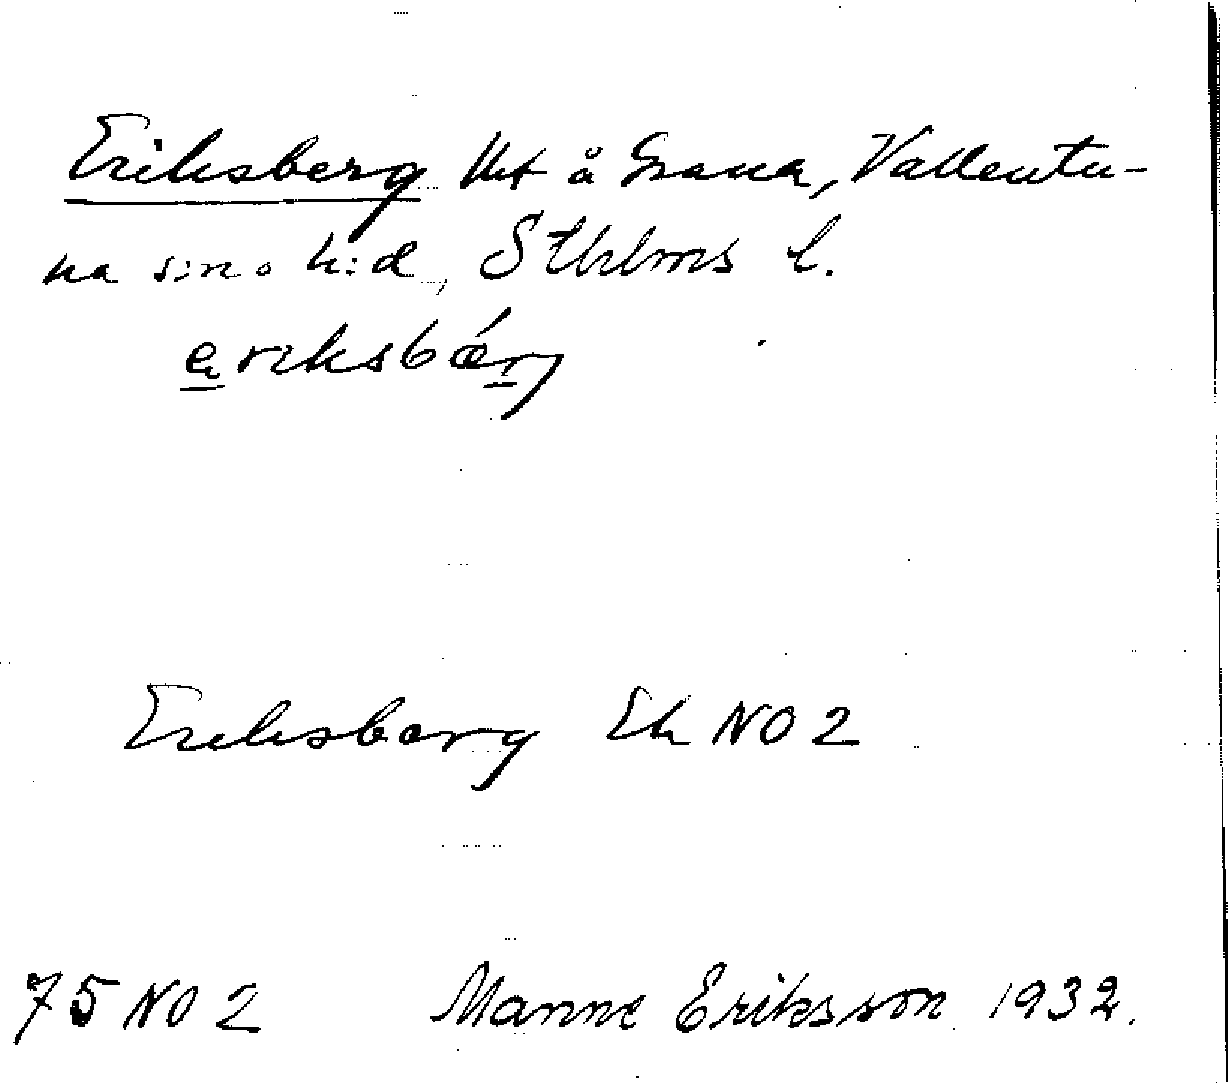 Eriksberg lht å Grana, Vallentu-
na sn o. h:d, Sthlms l.
eriksbärj
Eriksberg Ek NO 2
75 NO 2 Manne Eriksson 1932.